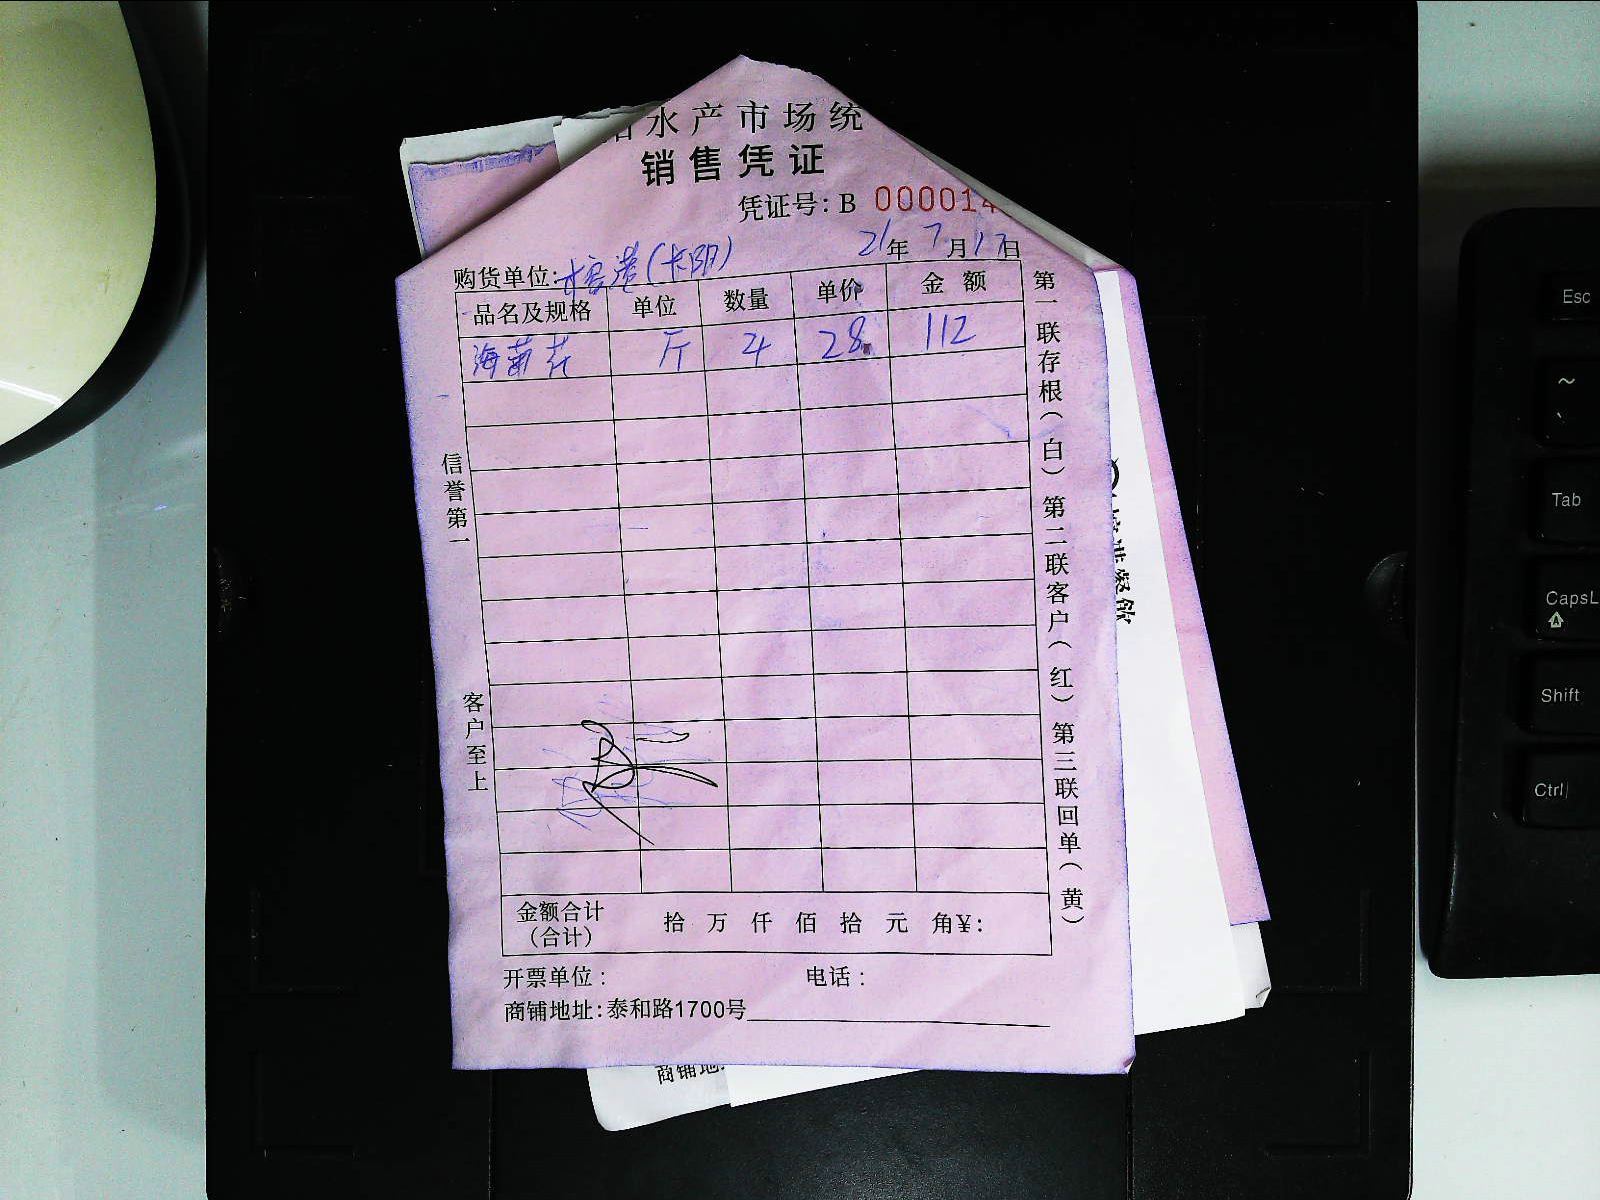 水产市场统
销售凭证
凭证号: B 000014
21年7月17日
购货单位:
品名及规格 单位 数量 单价 金额
海菊花 斤 4 28 112
信誉第一
客户至上
第一联存根(白) 第二联客户(红) 第三联回单(黄)
金额合计
(合计)
拾 万 仟 佰 拾 元 角¥:
开票单位: 电话:
商铺地址:泰和路1700号
商铺地
Esc
~
Tab
CapsL
Shift
Ctrl